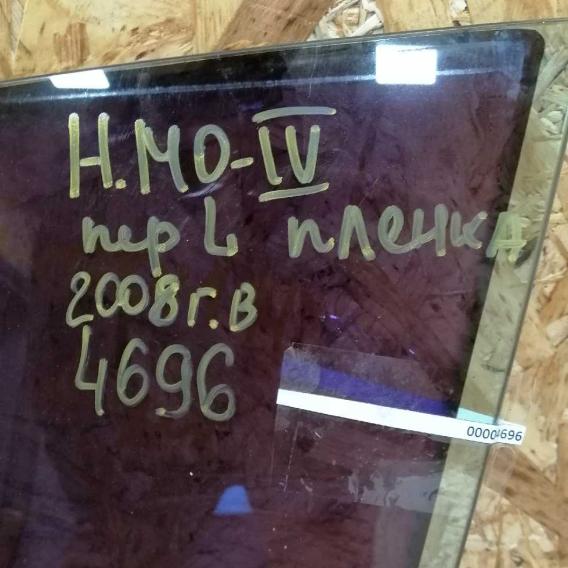 Н.МО-IV
пер L пленка
2008г.в
4696
00004696